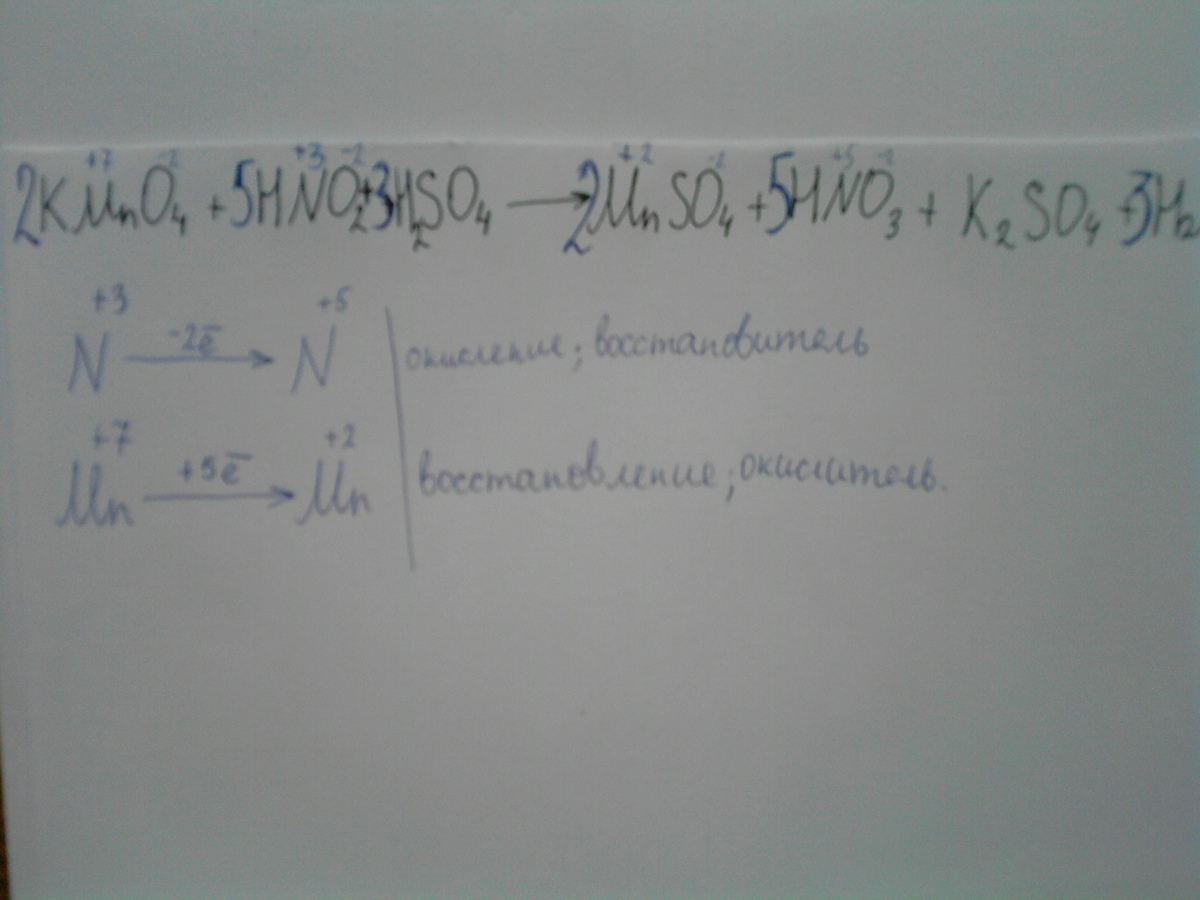 +7 -2 +3 -2 +2 -2 +5 -2
2KMnO₄ + 5HNO₂ + 3H₂SO₄ → 2MnSO₄ + 5HNO₃ + K₂SO₄ + 3H₂
+3 +5
N -2e̅ → N | окисление; восстановитель
+7 +2
Mn +5e̅ → Mn | восстановление; окислитель.